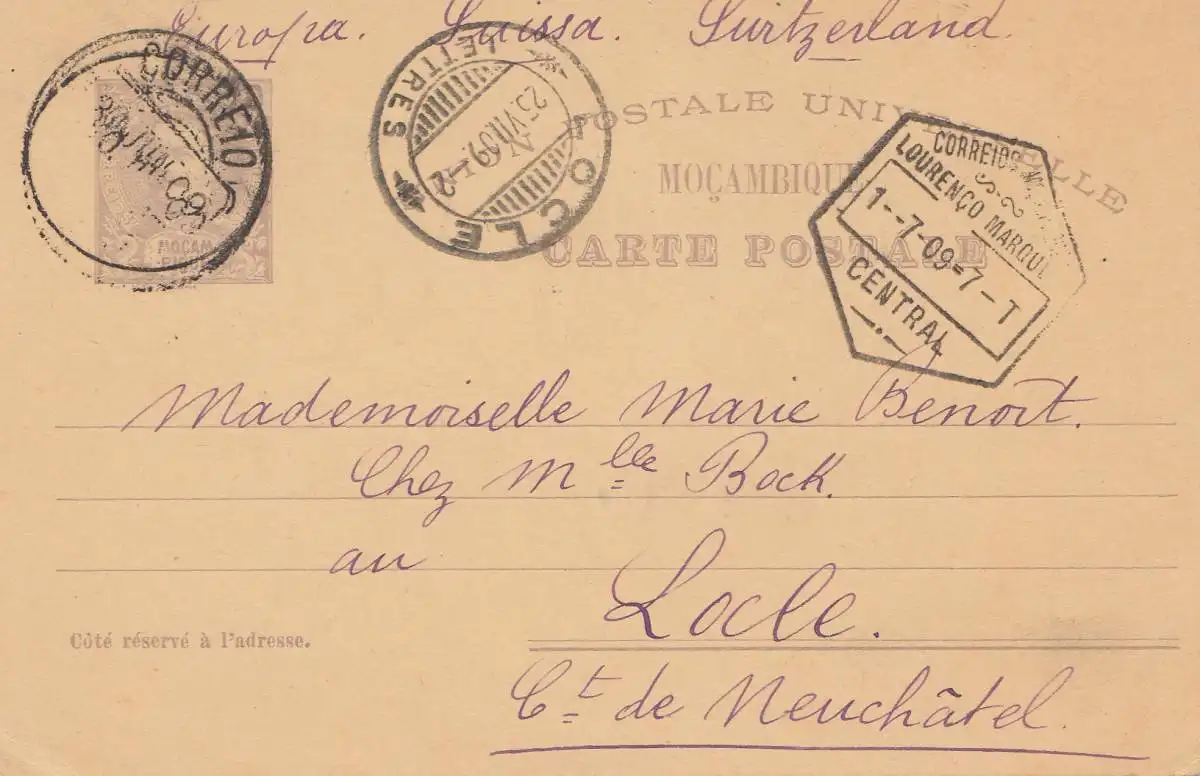 Europa. Suissa. Switzerland.
CORREIO
LOCLE
LETTRES
25.VII.09.
POSTALE UNIVERSELLE
MOÇAMBIQUE
CARTE POSTALE
CORREIOS
LOURENÇO MARQUE
1--7-09=7-T
CENTRAL
MOÇAM
Mademoiselle Marie Benoit.
Chez Mlle Bock.
au
Locle.
Côté réservé à l'adresse.
Ct de Neuchâtel.